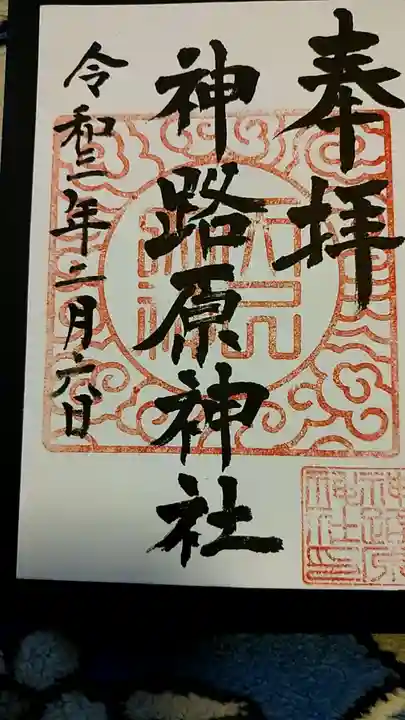 奉拝
神路原神社
令和三年二月六日